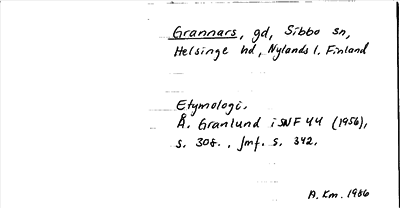 Grannars, gd, Sibbo sn,
Helsinge hd, Nylands l. Finland
Etymologi.
Å. Granlund i SNF 44 (1956),
s. 308., jmf. s. 342.
A. Km. 1986